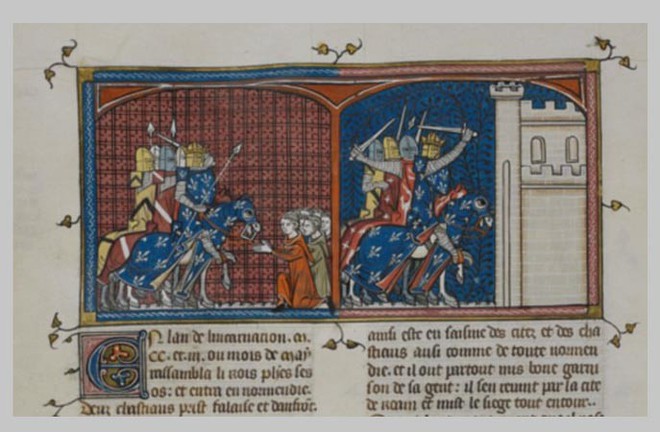 En lan de lincarnation. m.
cc. et. iii. ou mois de may
rassambla li rois phes ses
os: et entra en normendie.
deux chastiaus prist falaise et danfronc.
ainsi este en saisine des citez et des cha
stiaus ausi comme de toute normen
die. et il out partout mis bone garni
son de sa gent: il sen reuint par la cite
de roam et mist le siege tout entour..